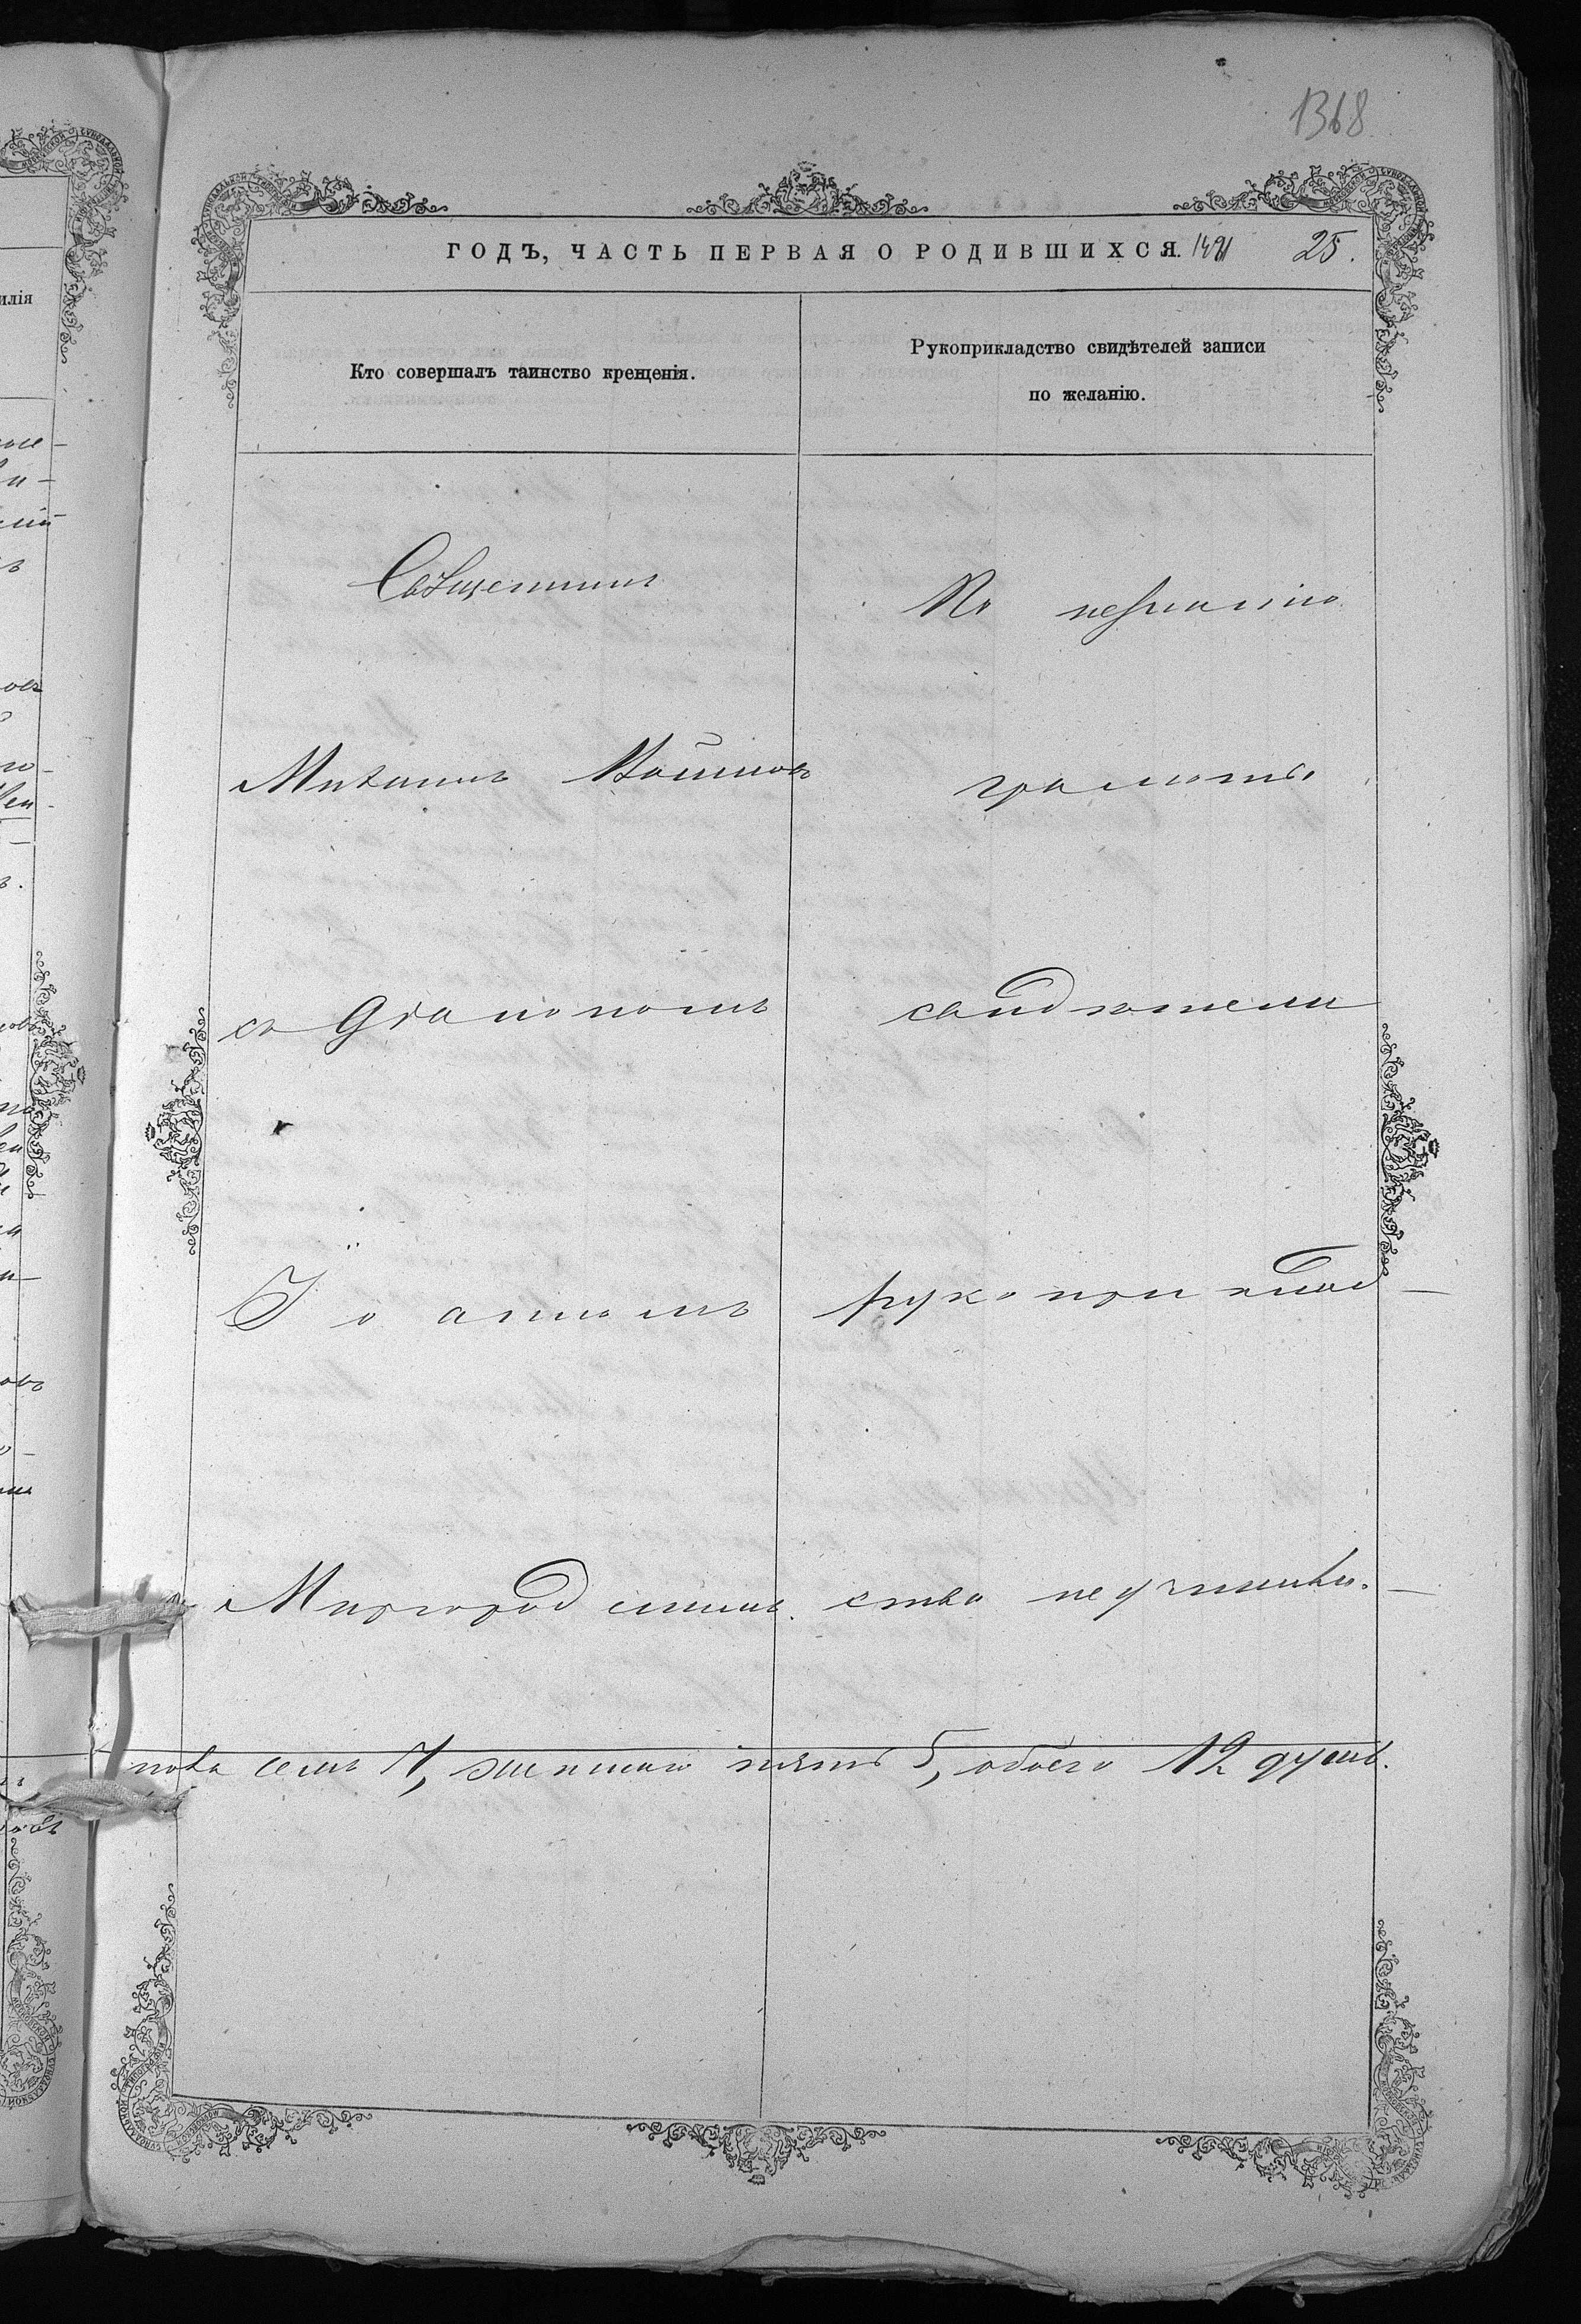 1368
ГОДЪ, ЧАСТЬ ПЕРВАЯ О РОДИВШИХСЯ. 25.
Кто совершалъ таинство крещенія.
Рукоприкладство свидѣтелей записи
по желанію.
Священникъ
Михаилъ
съ Діакономъ
Іоанномъ
Миргородскимъ.
По незнанію
грамоты
свидѣтели
рукоприклад-
ства не учинили.
пола семь 7, женскаго пять 5, обоего 12 душъ.
илія